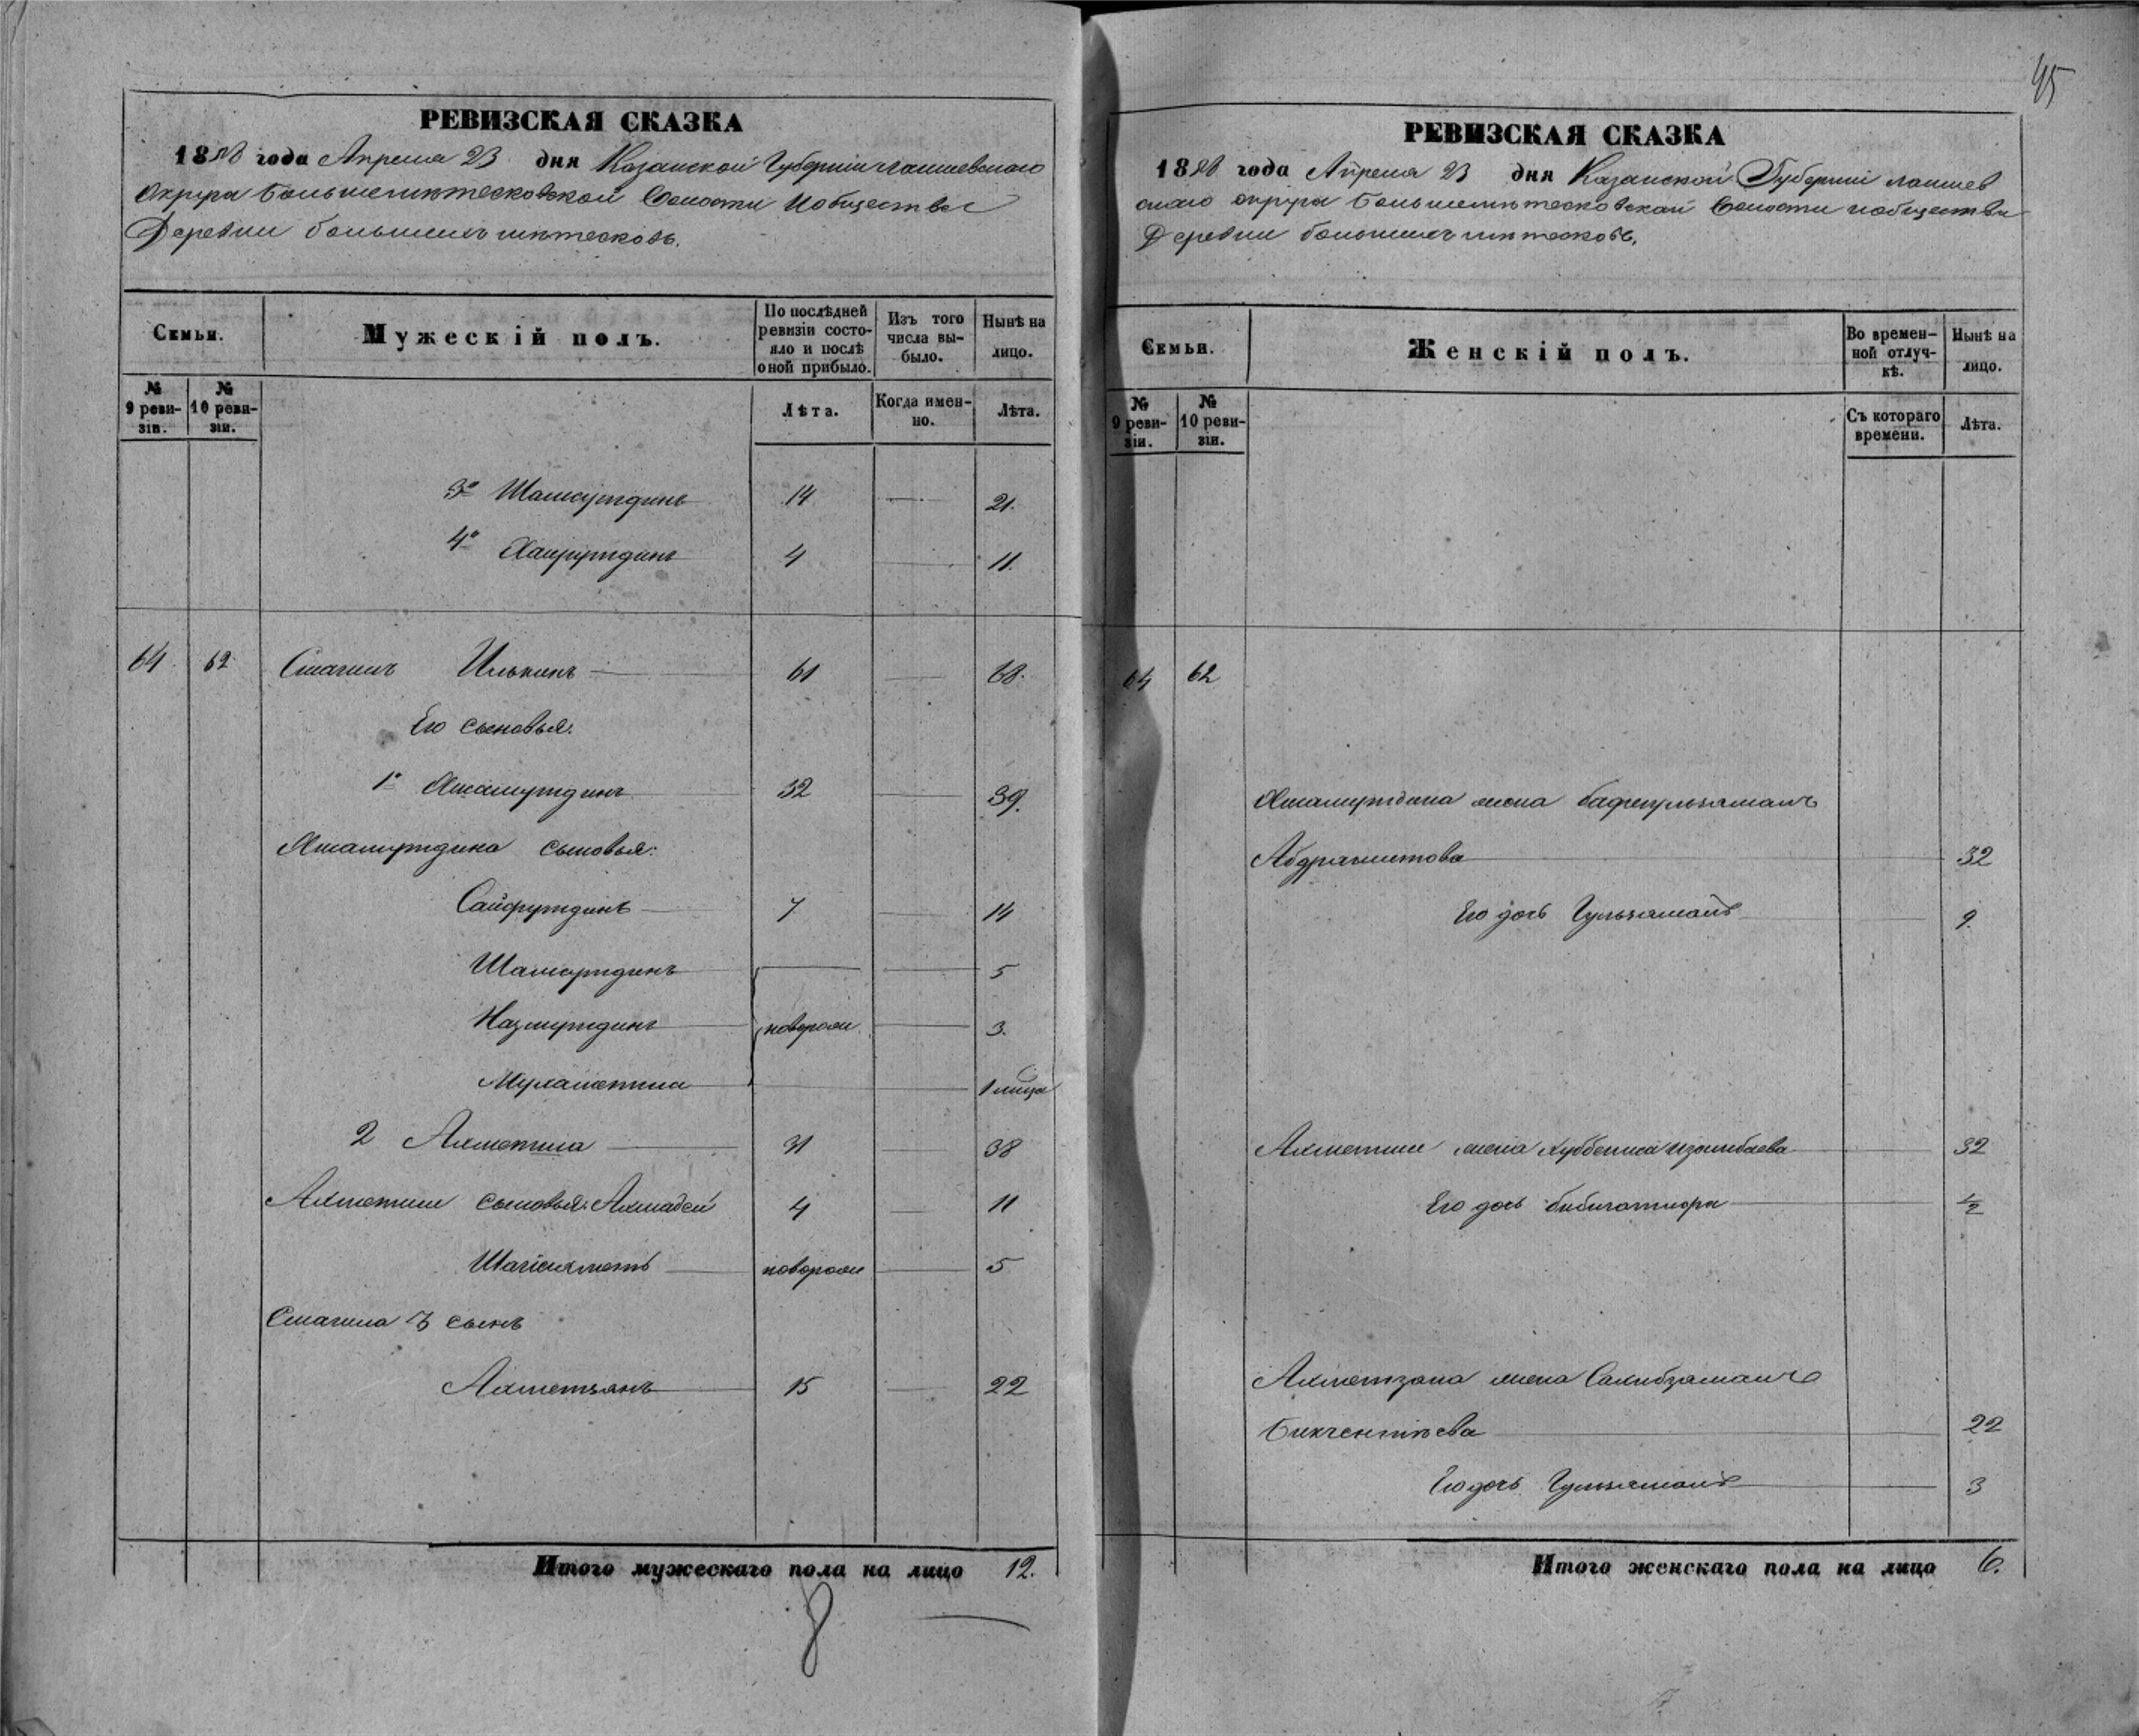 45
РЕВИЗСКАЯ СКАЗКА
1858 года Апреля 23 дня Казанской Губерніи Лаишевскаго
округа Большеметесковской Волости и общества
Деревни большихъ метесковъ.
Семьи.
Мужескій полъ.
По послѣдней ревизіи состояло и послѣ оной прибыло.
Изъ того числа выбыло.
Нынѣ на лицо.
№ 9 ревизіи.
№ 10 ревизіи.
Лѣта.
Когда именно.
Лѣта.
3й Шамсутдинъ 14 — 21.
4й Хайрутдинъ 4 — 11.
64. 62 Смагилъ Илькинъ — 61 — 68.
Его сыновья:
1й 32 — 39.
сыновья:
Сайфутдинъ — 7 — 14
Шамсутдинъ — 5
Назмутдинъ новорож. — 3.
Мухаметша — 1 мѣсяца
2 Ахметша — 31 — 38
Ахметши сыновья: Ахмадей 4 — 11
Шагіахметъ — новорож — 5
Смагила 3 сынъ
Ахметзянъ — 15 — 22
Итого мужескаго пола на лицо 12.
РЕВИЗСКАЯ СКАЗКА
1858 года Апреля 23 дня Казанской Губерніи Лаишев
скаго округа Большеметесковской Волости и общества
Деревни большихъ метесковъ.
Семьи.
Женскій полъ.
Во временной отлучкѣ.
Нынѣ на лицо.
№ 9 ревизіи.
№ 10 ревизіи.
Съ котораго времени.
Лѣта.
64 62
жена
Абдрашитова — 32
Его дочь Гульзямалъ — 9.
Ахметши жена — 32
Его дочь — ½
Ахметзяна жена Сахибзямалъ
Бикчентѣева — 22
Его дочь Гульзямалъ — 3
Итого женскаго пола на лицо 6.